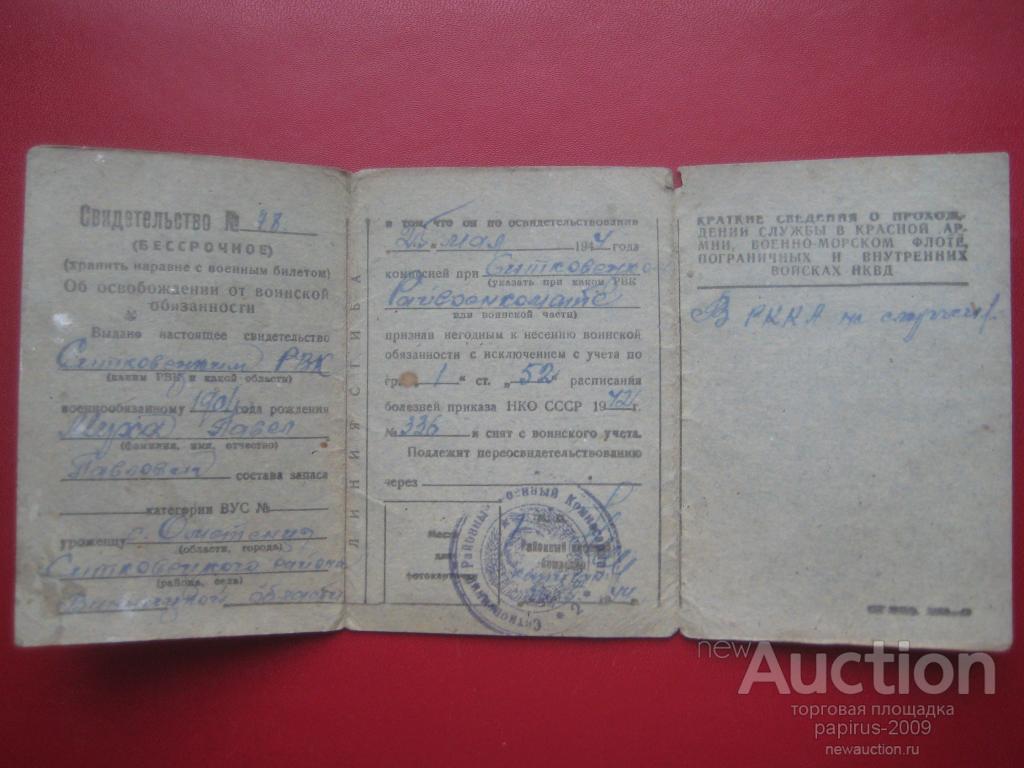 Свидетельство № 98.
(БЕССРОЧНОЕ)
(хранить наравне с военным билетом)
Об освобождении от воинской
обязанности
Выдано настоящее свидетельство
Ситковецким РВК
(каким РВК и какой области)
военнообязанному 1901 года рождения
Муха Павел
(фамилия, имя, отчество)
Павлович состава запаса
категории ВУС №
уроженцу с.
(области, города)
Ситковецкого района
(района, села)
Винницкой области
ЛИНИЯ СГИБА
в том, что он по освидетельствовании
25 мая 1944 года
комиссией при Ситковецко
(указать при каком РВК
Райвоенкомате
или воинской части)
признан негодным к несению воинской
обязанности с исключением с учета по
гр. 1 " ст. „ 52 " расписания
болезней приказа НКО СССР 1942 г.
№ 336 и снят с воинского учета.
Подлежит переосвидетельствованию
через
Место
для
фотокарточки
Районный
44
КРАТКИЕ СВЕДЕНИЯ О ПРОХОЖ-
ДЕНИИ СЛУЖБЫ В КРАСНОЙ АР-
МИИ, ВОЕННО-МОРСКОМ ФЛОТЕ,
ПОГРАНИЧНЫХ И ВНУТРЕННИХ
ВОЙСКАХ НКВД
В РККА не служил.
newAuction
торговая площадка
papirus-2009
newauction.ru